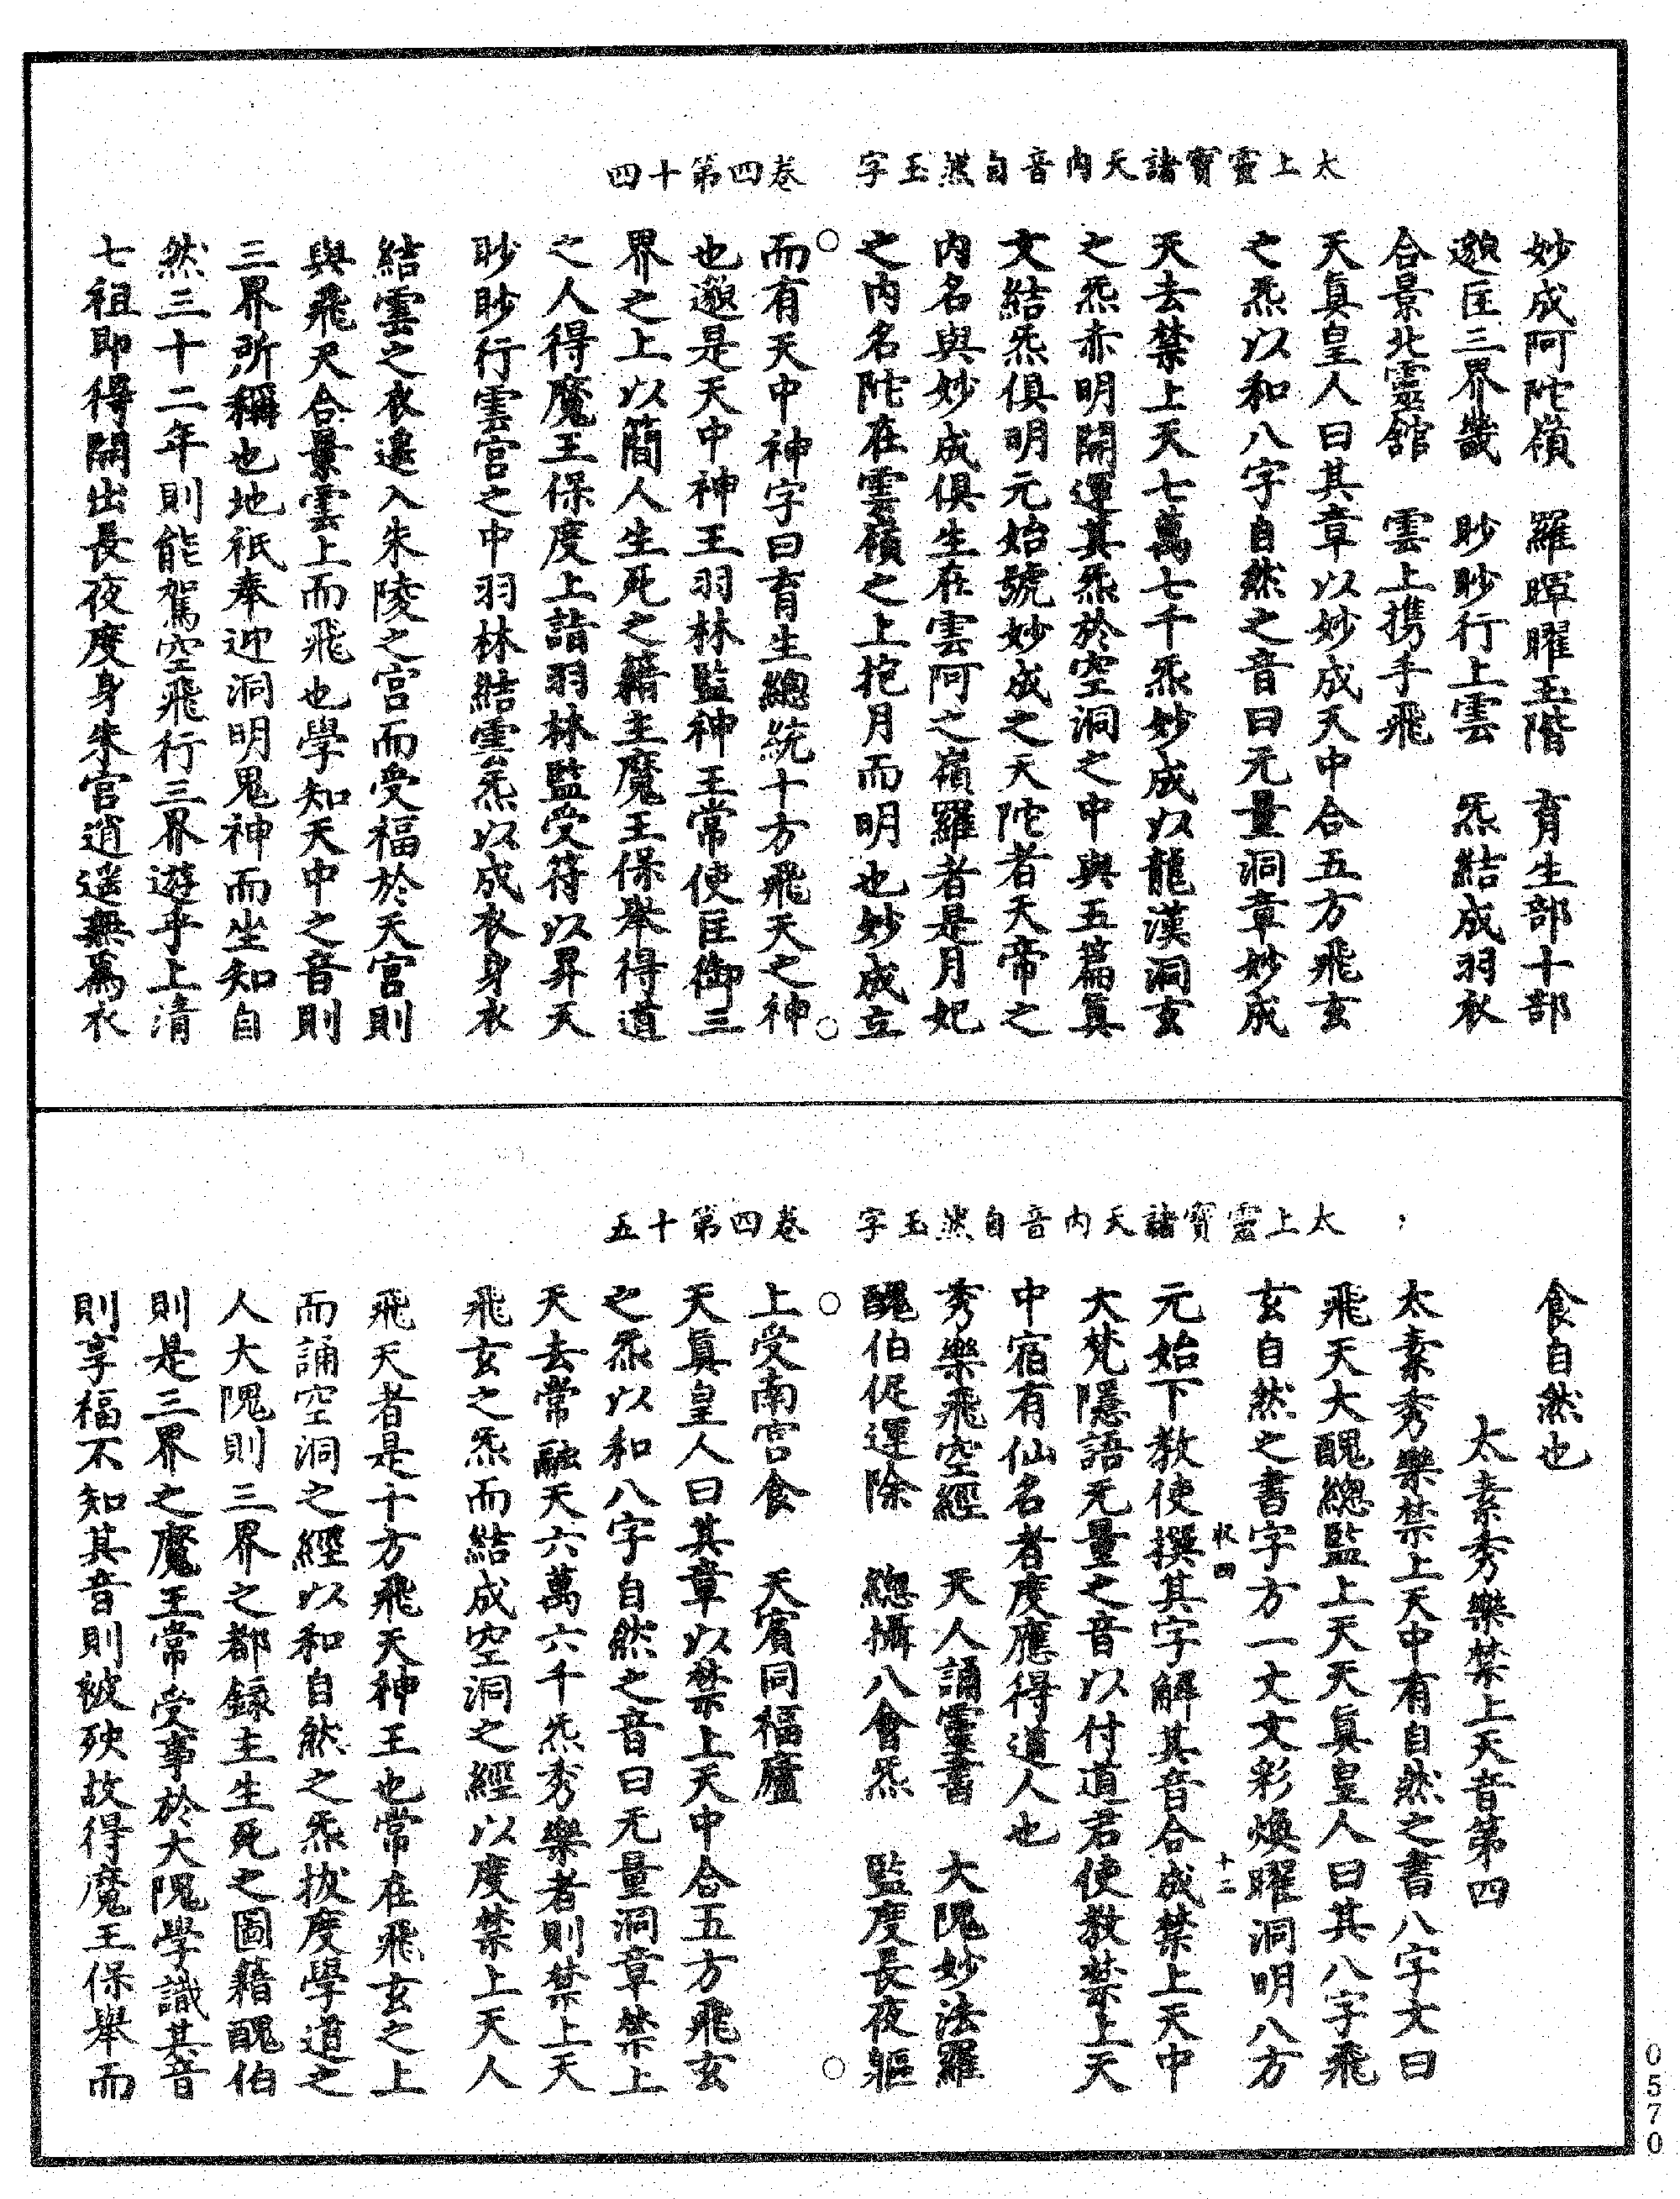 太上靈寶諸天內音自然玉字　卷四第十四
妙成阿陀嶺　羅暉曜玉階　育生部十部
邀匡三界畿　眇眇行上雲　炁結成羽衣
合景北靈舘　雲上携手飛
天真皇人曰其章以妙成天中合五方飛玄
之炁以和八字自然之音曰元量洞章妙成
天去禁上天七萬七千炁妙成以龍漢洞玄
之炁赤明開運其炁於空洞之中與五篇真
文結炁俱明元始號妙成之天陀者天帝之
内名與妙成俱生在雲阿之嶺羅者是月妃
之内名陀在雲嶺之上抱月而明也妙成立
而有天中神字曰育生總統十方飛天之神
也邀是天中神王羽林監神王常使匡御三
界之上以簡人生死之籍主魔王保舉得道
之人得魔王保度上詣羽林監受符以昇天
眇眇行雲宮之中羽林結雲炁以成衣身衣
結雲之衣進入朱陵之宮而受福於天宮則
與飛天合景雲上而飛也學知天中之音則
三界所稱也地祇奉迎洞明鬼神而坐知自
然三十二年則能駕空飛行三界遊乎上清
七祖即得開出長夜度身朱宮逍遥無爲衣
太上靈寶諸天內音自然玉字　卷四第十五
食自然也
太素秀樂禁上天音第四
太素秀樂禁上天中有自然之書八字文曰
飛天大醜總監上天天真皇人曰其八字飛
玄自然之書字方一丈文彩煥曜洞明八方
元始下教使撰其字解其音合成禁上天中
大梵隱語无量之音以付道君使教禁上天
中宿有仙名者度應得道人也
秀樂飛空經　天人誦靈書　大隗妙法羅
醜伯促運除　總攝八會炁　監度長夜軀
上受南宮食　天賓同福廬
天真皇人曰其章以禁上天中合五方飛玄
之炁以和八字自然之音曰无量洞章禁上
天去常融天六萬六千炁秀樂者則禁上天
飛玄之炁而結成空洞之經以度禁上天人
飛天者是十方飛天神王也常在飛玄之上
而誦空洞之經以和自然之炁拔度學道之
人大隗則三界之都錄主生死之圖籍醜伯
則是三界之魔王常受事於大隗學識其音
則享福不知其音則被殃故得魔王保舉而
0570